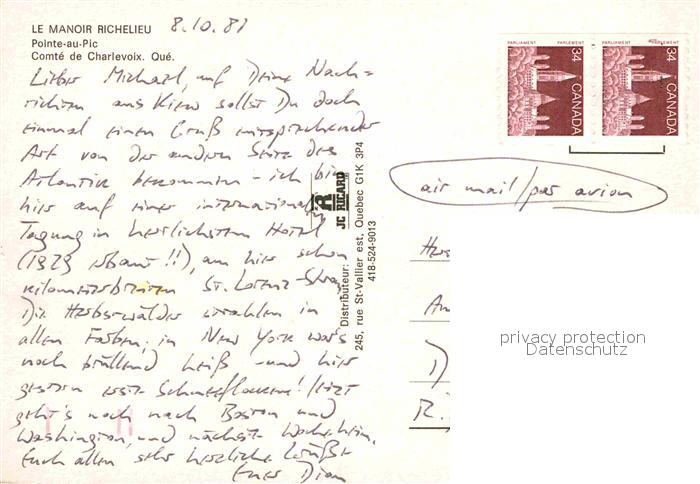 LE MANOIR RICHELIEU 8.10.87
Pointe-au-Pic
Comté de Charlevoix. Qué.
Lieber Michael, auf Deine Nach=
richten aus Kiew sollst Du doch
einmal einen Gruß entsprechender
Art von der andern Seite des
Atlantik bekommen - ich bin
hier auf einer internationalen
Tagung in herrlichstem Hotel
(1929 erbaut!!), am hier schon
kilometerbreiten St. Lorenz-Strom
Die Herbstwälder strahlen in
allen Farben, in New York war's
noch brüllend heiß - und hier
gestern erste Schneeflocken! Jetzt
geht's noch nach Boston und
Washington, und nächste Woche heim.
Euch allen sehr herzliche Grüße
Euer
JC RICARD
Distributeur:
245, rue St-Vallier est, Quebec G1K 3P4
418-524-9013
PARLIAMENT PARLEMENT
34
CANADA
PARLIAMENT PARLEMENT
34
CANADA
air mail/par avion
privacy protection
Datenschutz